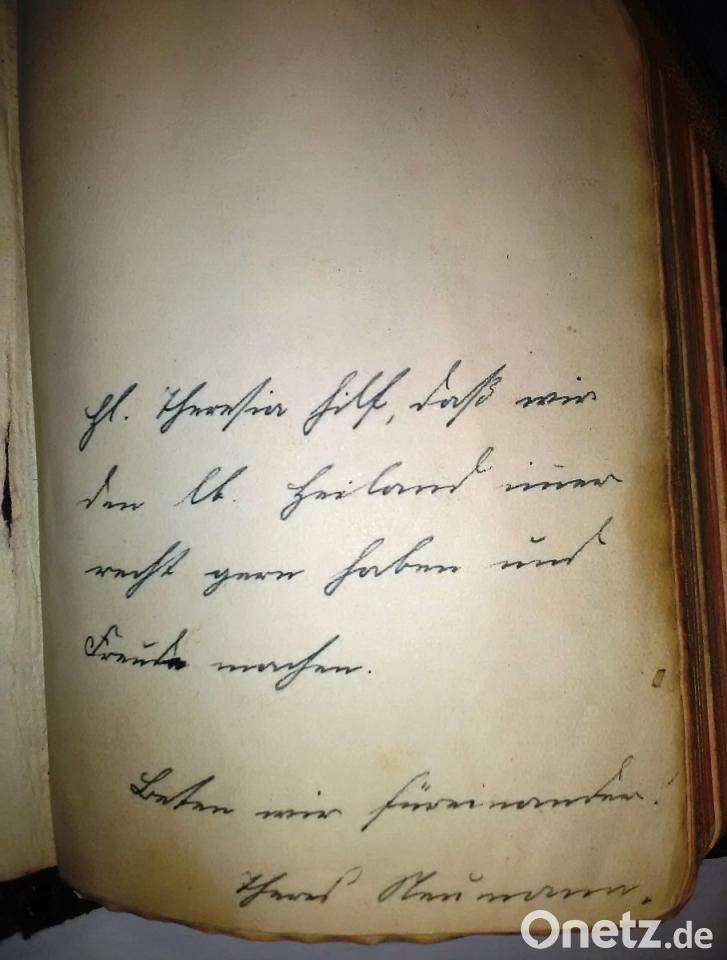 Hl. Theresia hilf, daß wir
den lb. Heiland imer
recht gern haben und
Freude machen.
Beten wir füreinander!
Theres Neumann.
Onetz.de